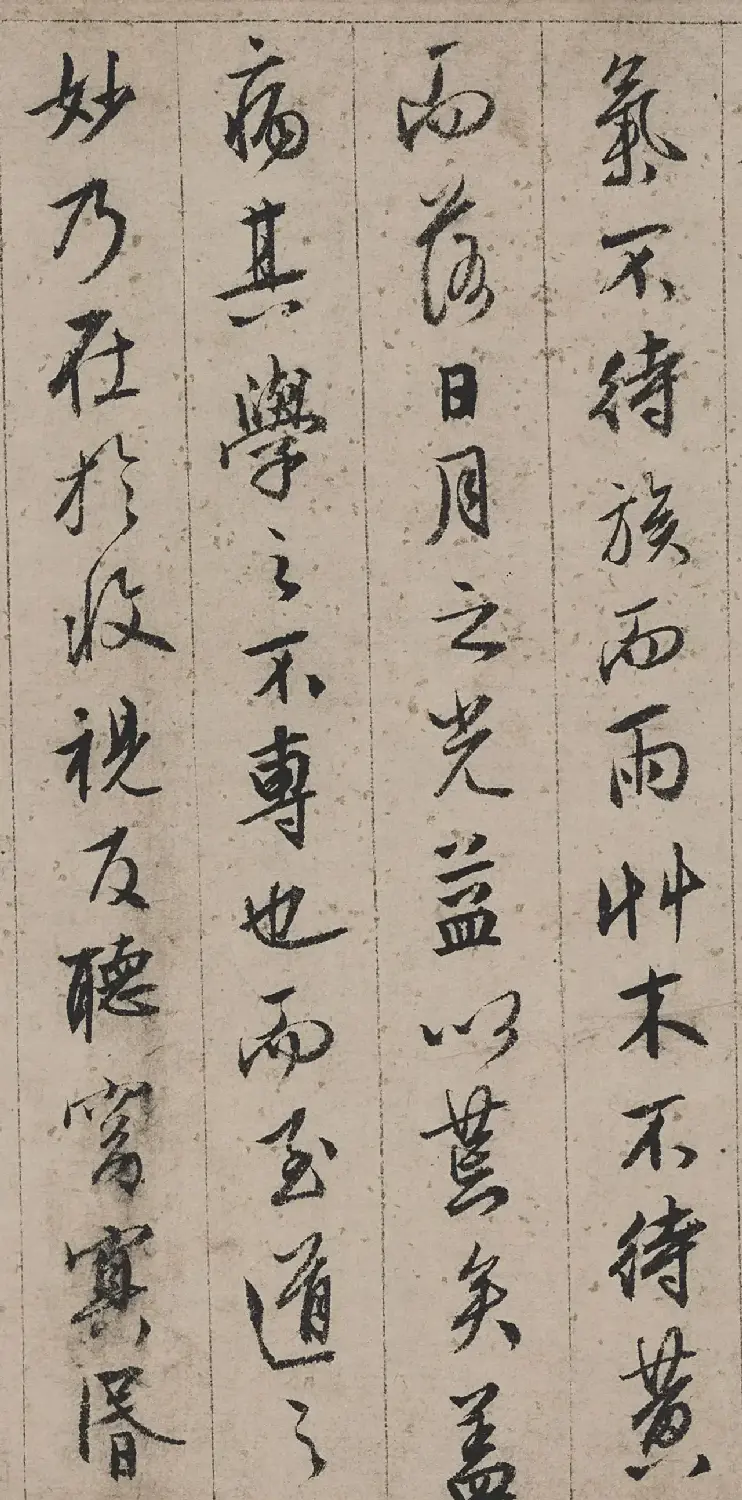 氣不待族而雨艸木不待黃
而落日月之光益以荒矣蓋
病其學之不專也而至道之
妙乃在於收視反聽窈冥昏